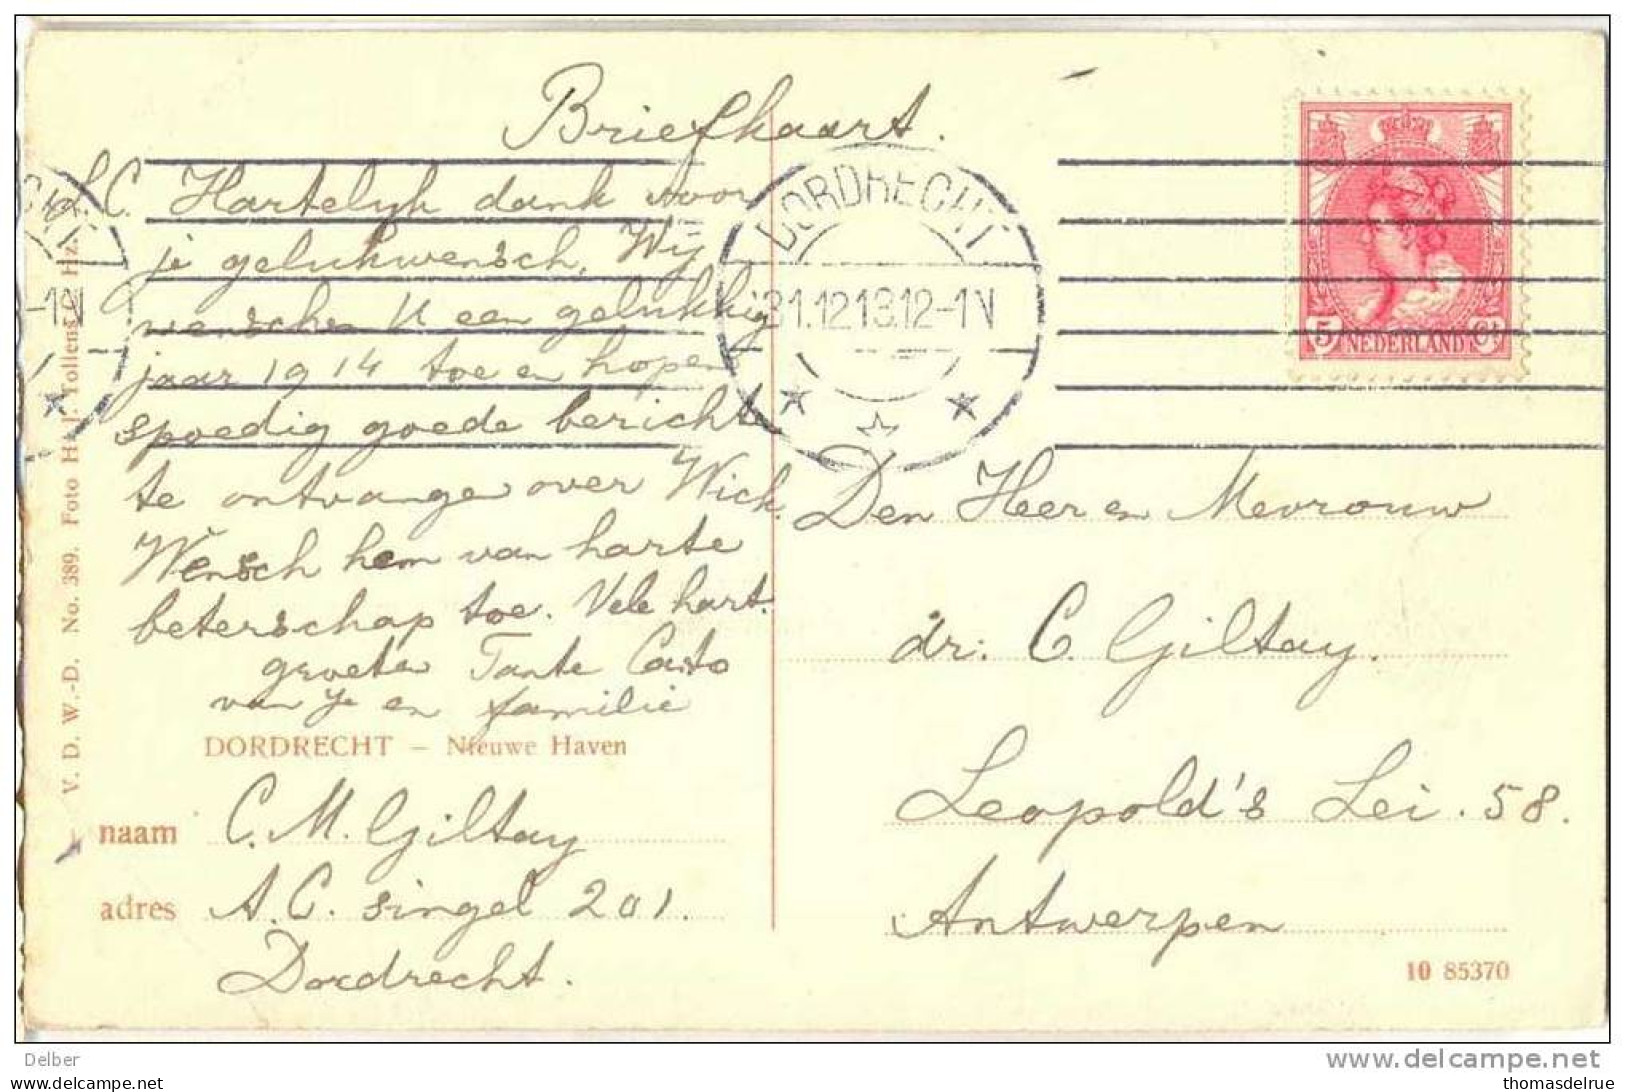 Briefkaart.
L.C. Hartelijk dank voor
je gelukwensch. Wij
wenschen U een gelukkig
jaar 1914 toe en hopen
spoedig goede berichten
te ontvangen over Wick.
Wensch hem van harte
beterschap toe. Vele hart.
groeten Tante Cato
van Je en familie
DORDRECHT – Nieuwe Haven
naam C. M. Giltay
adres A. C. singel 201.
Dordrecht.
V. D. W.-D. No. 389. Foto H. J. Tollens C Hz.
DORDRECHT
31.12 13.12-1N
-1N
5 NEDERLAND Ct
Den Heer en Mevrouw
dr: C. Giltay.
Leopold's Lei . 58.
Antwerpen
10 85370
Delber
www.delcampe.net
(c) delcampe.net
thomasdelrue